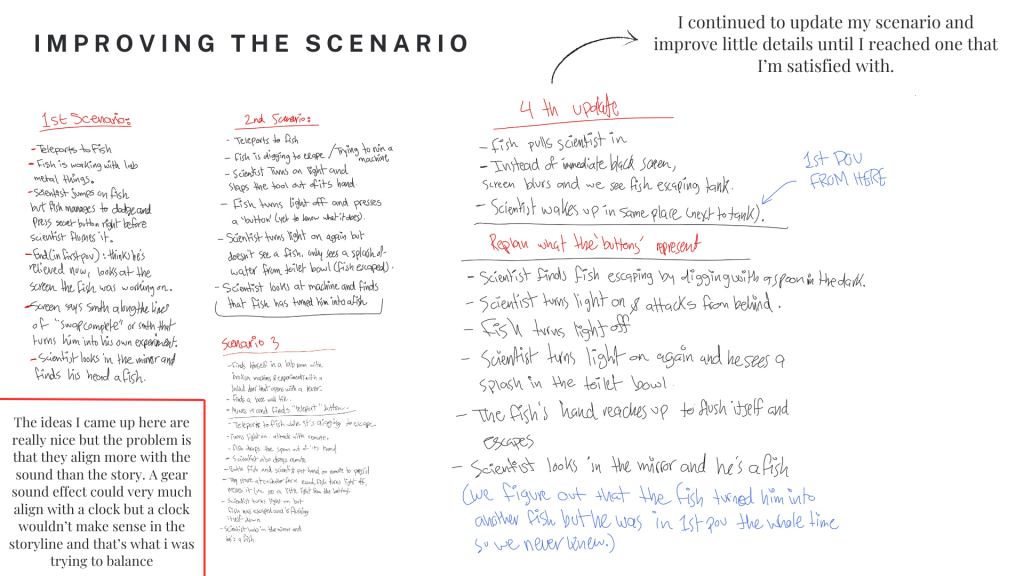 IMPROVING THE SCENARIO
I continued to update my scenario and
improve little details until I reached one that
I'm satisfied with.
1st Scenario:
- Teleports to Fish
- Fish is working with lab
metal things.
- Scientist jumps on fish
but fish manages to dodge and
press secret button right before
scientist flushes it.
- End (in first pov): thinks he's
relieved now, looks at the
screen the fish was working on.
- Screen says smth along the line
of "swap complete" or smth that
turns him into his own experiment.
- Scientist looks in the mirror and
finds his head a fish.
The ideas I came up here are
really nice but the problem is
that they align more with the
sound than the story. A gear
sound effect could very much
align with a clock but a clock
wouldn't make sense in the
storyline and that's what i was
trying to balance
2nd Scenario:
- Teleports to fish
- Fish is digging to escape / Trying to ruin a
machine
- Scientist turns on light and
slaps the tool out of its hand
- Fish turns light off and presses
a 'button' (yet to know what it does).
- Scientist turns light on again but
doesn't see a fish. only sees a splash of
water from toilet bowl (fish escaped).
- Scientist looks at machine and finds
that fish has turned him into a fish
Scenario 3
- Finds himself in a lab room with
broken machines & experiments with a
locked door that opens with a lever.
- Finds a box with
- and finds "teleport" button.
- Teleports to fish while it's digging to escape
- Turns light on, attack with remote.
- Fish drops the spoon out of its hand
- Scientist also drops remote
- Both fish and scientist put hand on remote to
- Scientist turns light on but
fish has escaped and is flushing
itself down
- Scientist looks in the mirror and
he's a fish.
4th update
- Fish pulls scientist in
- Instead of immediate black screen,
screen blurs and we see fish escaping tank.
- Scientist wakes up in same place (next to tank).
1ST POV
FROM HERE
Replan what the 'buttons' represent
- Scientist finds fish escaping by digging with a spoon in the dark.
- Scientist turns light on & attacks from behind.
- Fish turns light off
- Scientist turns light on again and he sees a
splash in the toilet bowl.
- The fish's hand reaches up to flush itself and
escapes
- Scientist looks in the mirror and he's a fish
(we figure out that the fish turned him into
another fish but he was in 1st pov the whole time
so we never knew.)